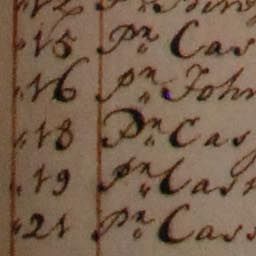 15 Pr. Cas
16 pr. John
18 Pr. Cas
19 pr. Cas
21 Pr. Cas